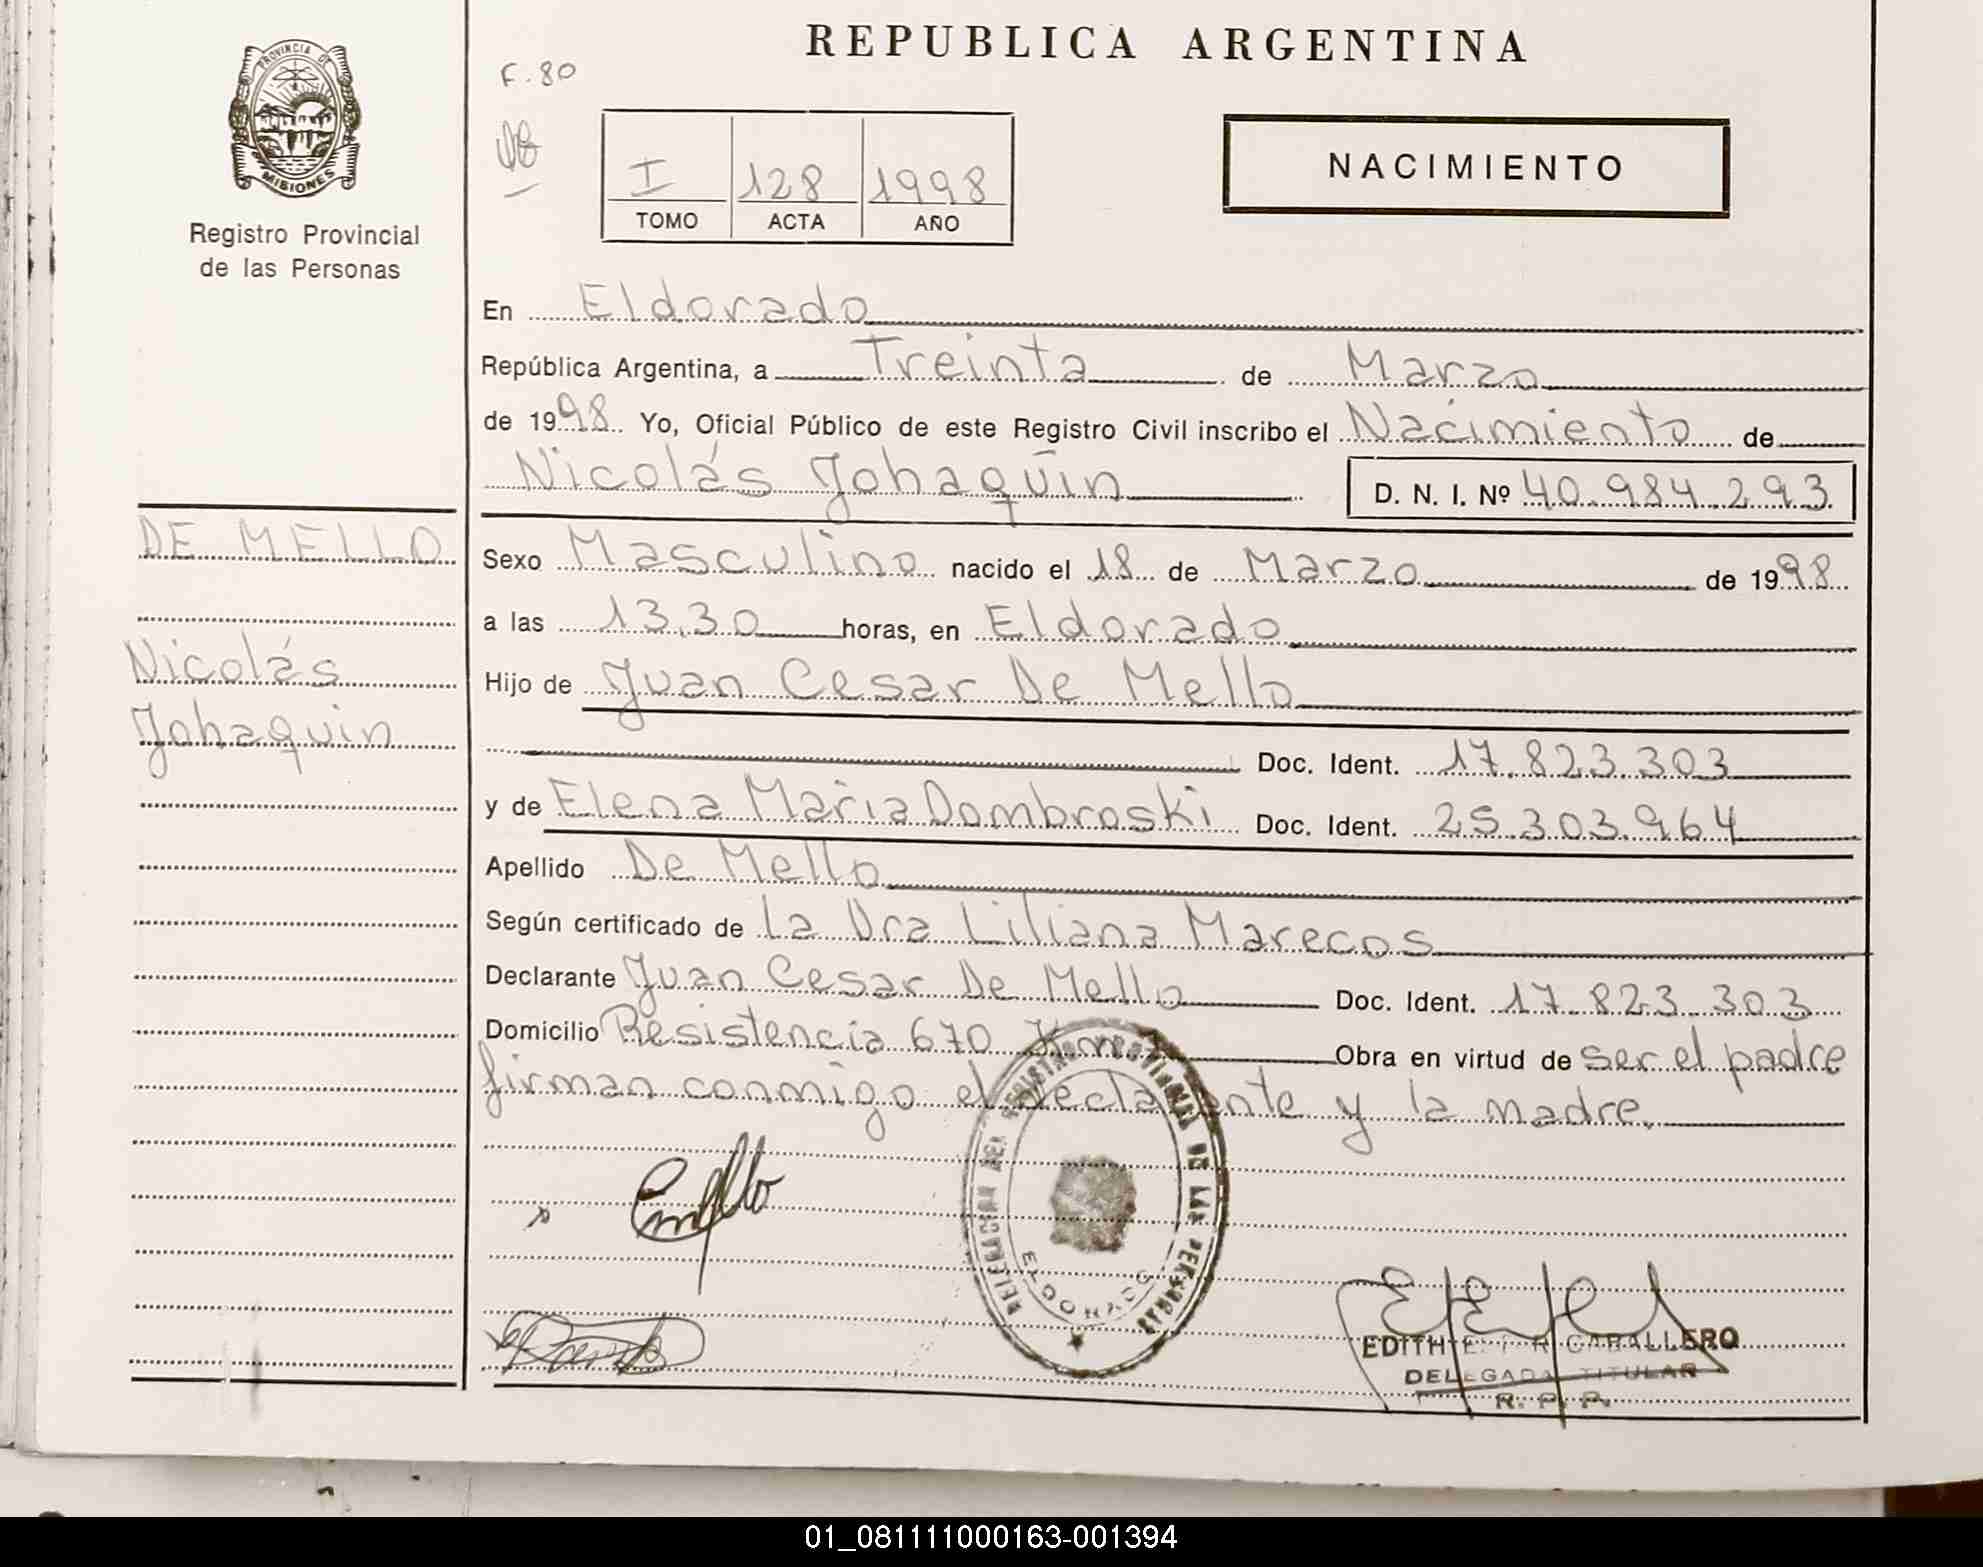 REPUBLICA ARGENTINA
F. 80
PROVINCIA DE
MISIONES
Registro Provincial
de las Personas
I 128 1998
TOMO ACTA AÑO
NACIMIENTO
En Eldorado
República Argentina, a Treinta de Marzo
de 1998 Yo, Oficial Público de este Registro Civil inscribo el Nacimiento de
Nicolás Johaquin D. N. I. Nº 40.984.293
DE MELLO
Nicolás
Johaquin
Sexo Masculino nacido el 18 de Marzo de 1998
a las 13.30 horas, en Eldorado
Hijo de Juan Cesar De Mello
Doc. Ident. 17.823.303
y de Elena Maria Dombroski Doc. Ident. 25.303.964
Apellido De Mello
Según certificado de La Dra Liliana Marecos
Declarante Juan Cesar De Mello Doc. Ident. 17.823.303
Domicilio Resistencia 670 Obra en virtud de ser el padre
firman conmigo el declarante y la madre.
DELEGACION DEL REGISTRO PROVINCIAL DE LAS PERSONAS
ELDORADO
EDITH CABALLERO
DELEGADA TITULAR
R. P. P.
01_081111000163-001394